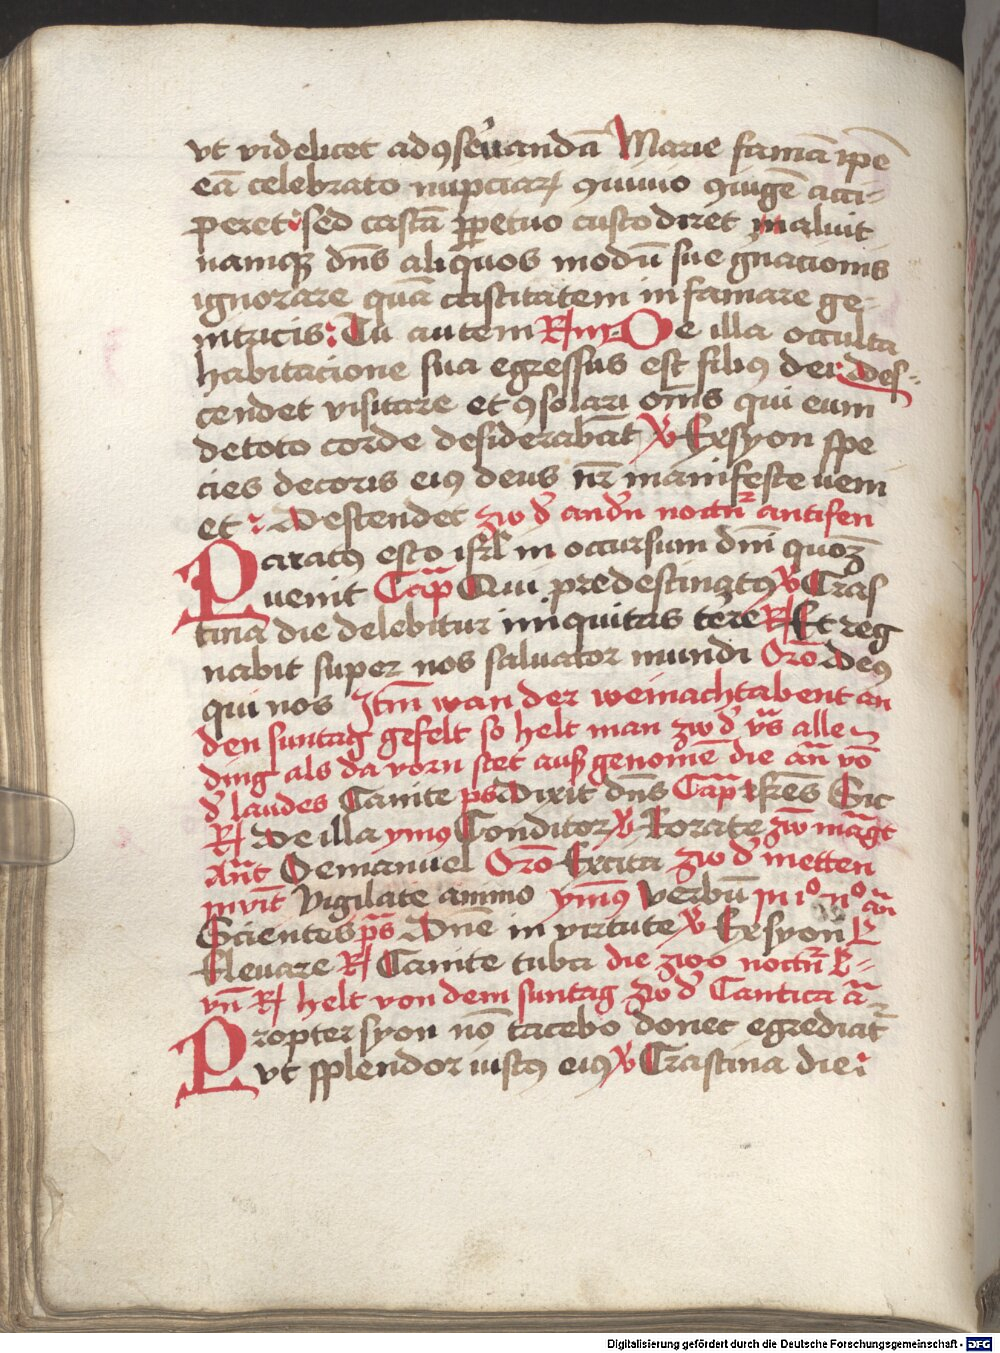 vt videlicet ad ꝯseruandā Marie famā ipē
eā celebrato nupciaꝝ ꝯuiuio ꝯiugē acci-
peret: sed castā ꝑpetuo custodiret maluit
namqꝫ dn̄s aliquos modū sue gnacionis
ignorare quā castitatem infamare ge-
nitricis: Tu autem R/ iij De illa occulta
habitacione sua egressus est filiꝰ dei: Des-
cendet visitare et ꝯsolari om̄s qui eum
de toto corde desiderabāt v̓ Ex syon spe
cies decoris eiꝰ deus nr̄ manifeste veni
et: Descendet zw d̓ andn̄ noctur̄ antifen
Paratꝰ esto isrl̄ in occursum dn̄i quoꝫ
uenit Cap̄ Qui predestinatꝰ v̓ Cras
tina die delebitur iniquitas terre R/ Et reg
nabit super nos saluator mundi Orō Deꝰ
qui nos Itm̄ wan der weinachtabent an
den suntag gefelt so helt man zw d̓ vꝰs alle
ding als da vorn stet ausgenomē die an̄ vō
d̓ laudes Canite ps Dixit dn̄s Cap̄ Fr̄es Sic
R/ De illa ymꝰ Conditor v̓ Rorate zw magt
Ant̄ O emanuel Orō Excita zw d̓ metten
Invit̄ Vigilate animo ymꝰ Verbū In i° n° an̄
Scientes ps Dn̄e in virtute v̓ Ex syon L̄
Eleuare R/ Canite tuba die zwo noctur̄ L-
vn̄ R/ helt von dem suntag zw d̓ Cantica ā
Propter syon nō tacebo donec egrediat̄
vt splendor iustꝰ eiꝰ v̓ Crastina die:
Digitalisierung gefördert durch die Deutsche Forschungsgemeinschaft - DFG